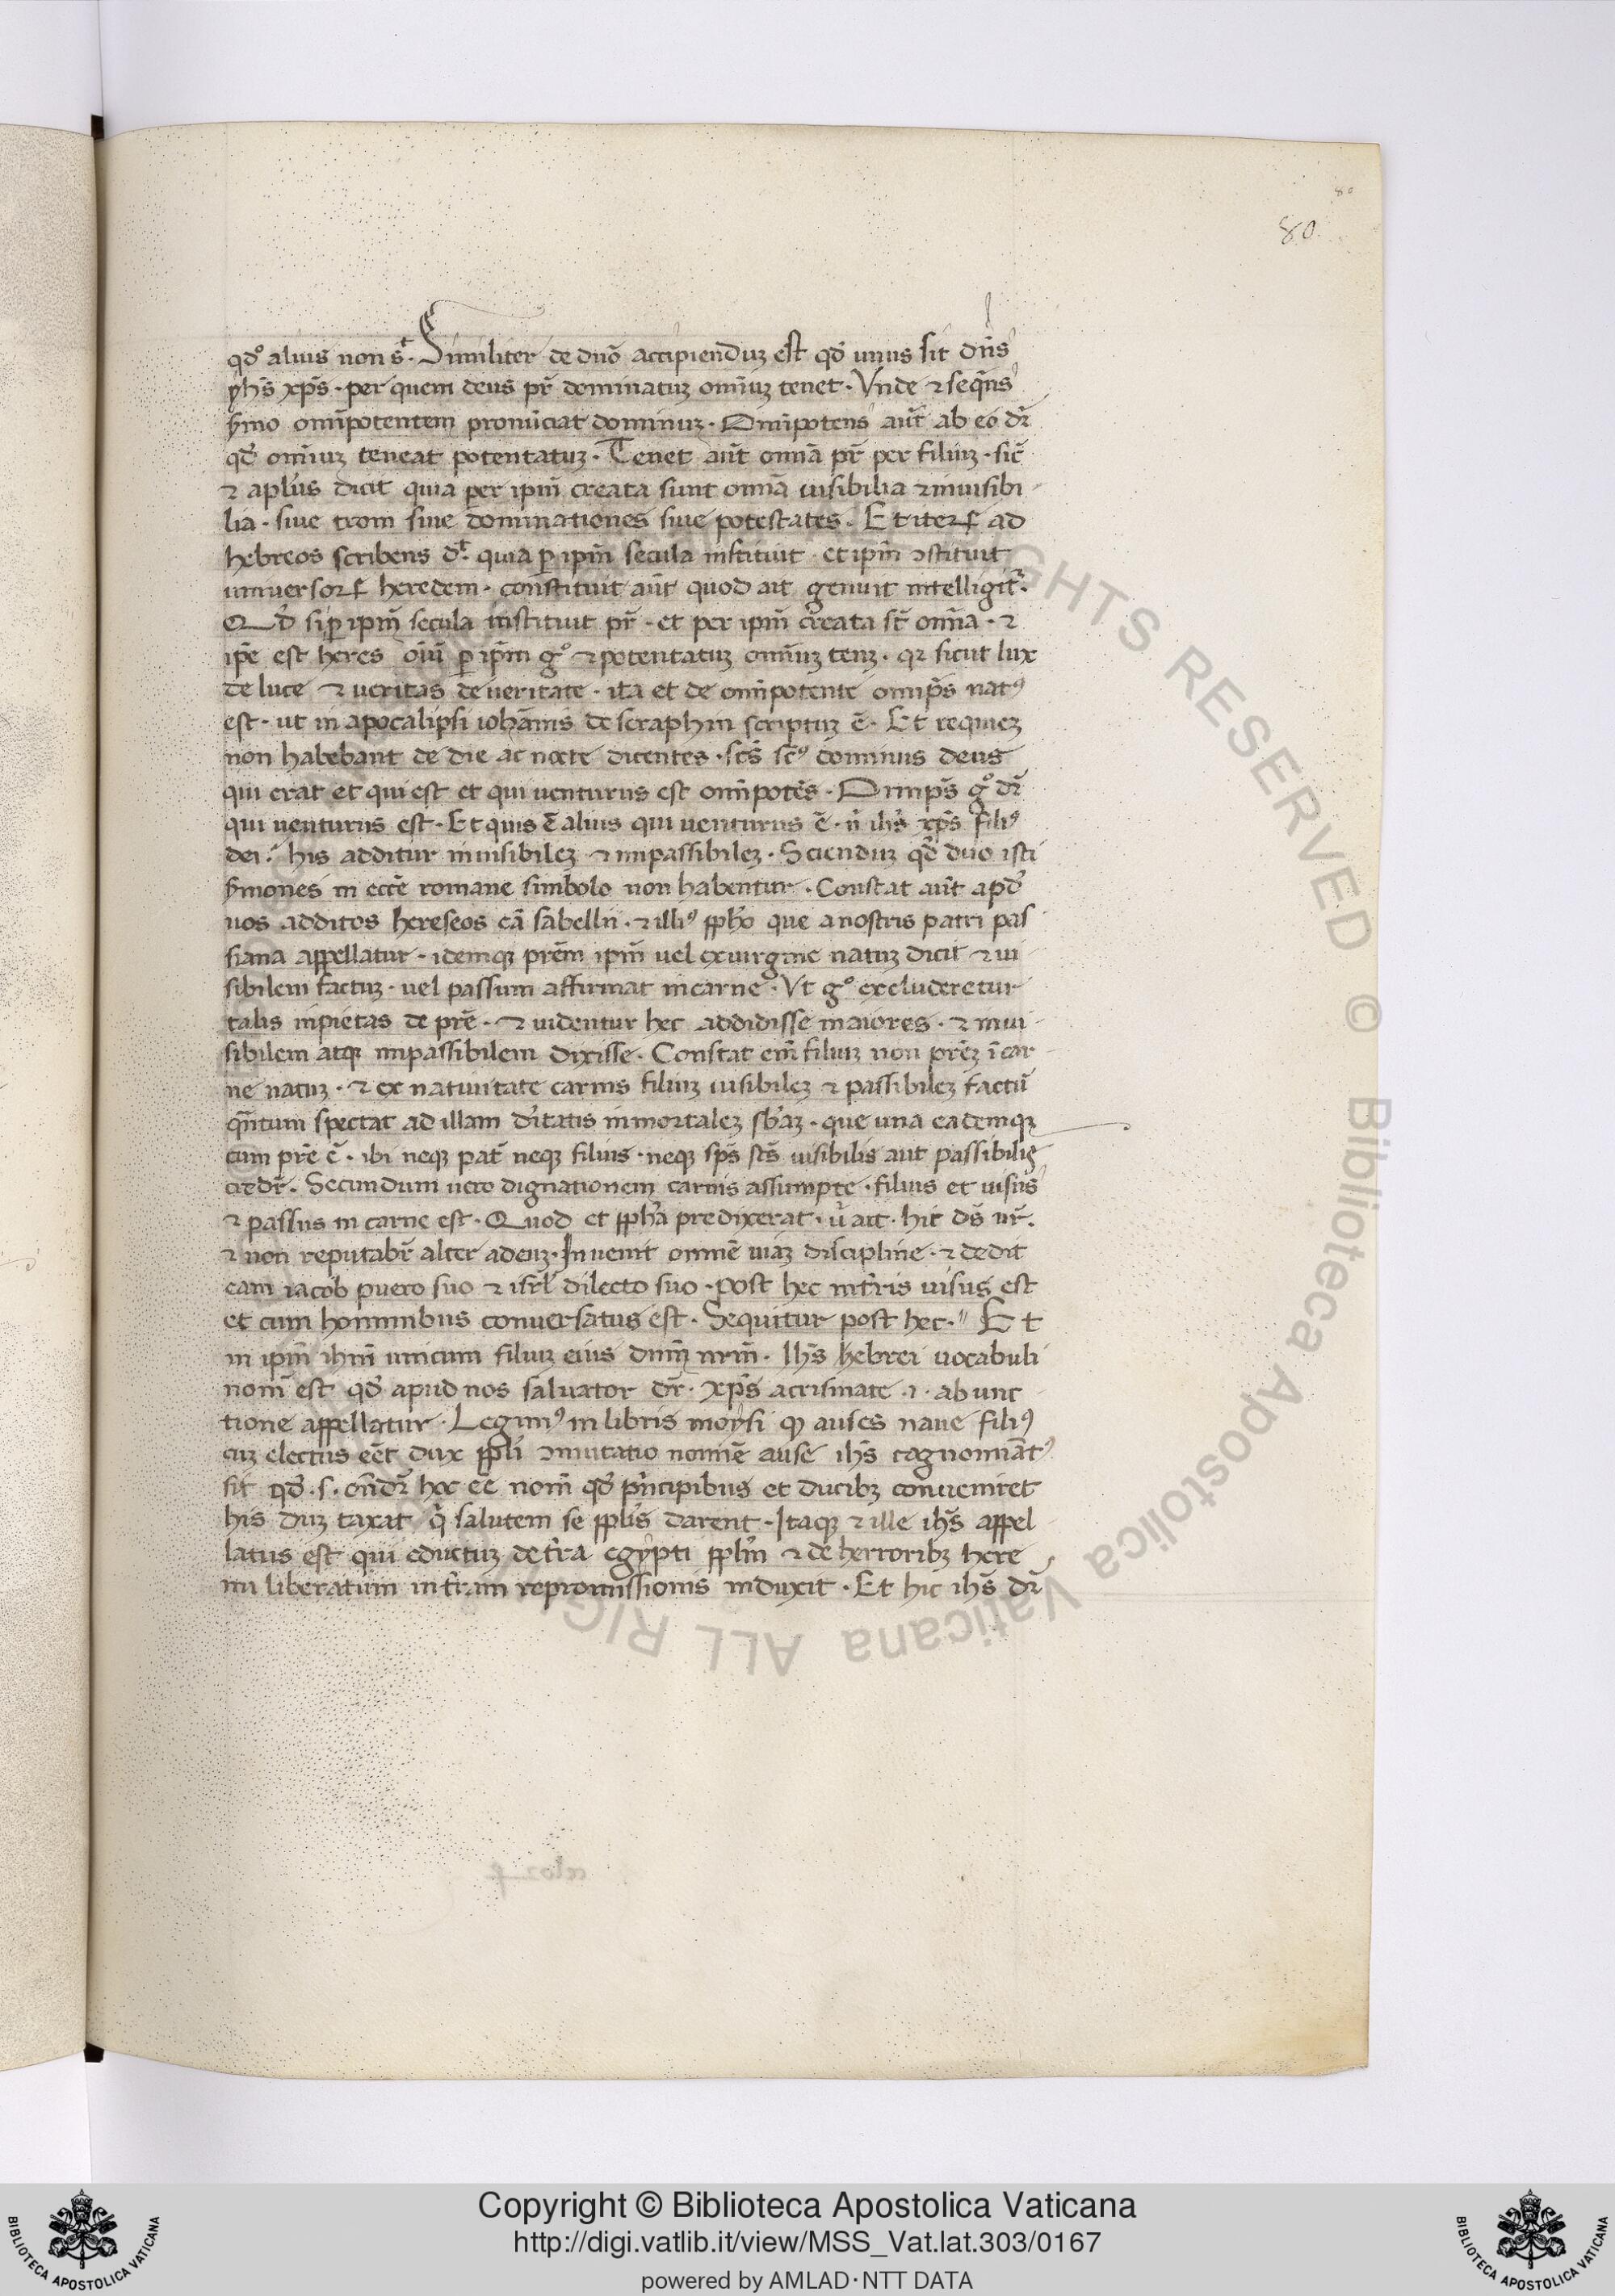 80
80
qdo alius non st. Similiter de dno accipienduz est qd unus sit dns
yhs xps. per quem deus pr dominatuz omniuz tenet. Vnde et seqns
smo omnipotentem pronunciat dominuz. Omnipotens aut ab eo dr
qd omniuz teneat potentatuz. Tenet aut omnia pr per filiuz. sic
et aplus dicit quia per ipm creata sunt omnia uisibilia et inuisibi
lia. siue troni siue dominationes siue potestates. Et iterum ad
hebreos scribens dt. quia per ipm secula instituit. et ipm constituit
uniuersorum heredem. constituit aut quod ait genuit intelligitr.
Qd si per ipm secula instituit pr. et per ipm creata st omnia. et
ipe est heres oium per ipm go et potentatuz omniuz tenz. qr sicut lux
de luce et ueritas de ueritate. ita et de omnipotente omnips natus
est. ut in apocalipsi iohannis de seraphin scriptuz e. Et requiez
non habebant de die ac nocte dicentes. scs scus dominus deus
qui erat et qui est et qui uenturus est omnipotes. Omnips go dr
qui uenturus est. Et quis e alius qui uenturus e. n ihs xps filius
dei. his additur inuisibilez et impassibilez. Sciendum qd duo isti
smones in eccle romane simbolo non habentur. Constat aut apd
nos additos hereseos ca sabellii. et illius ppho que a nostris patri pas
siana appellatur. idemque prem ipm uel ex uirgine natuz dicit et ui
sibilem factuz. uel passum affirmat in carne. Vt go excluderetur
talis inpietas de pre. et uidentur hec addidisse maiores. et inui
sibilem atque impassibilem dixisse. Constat em filiuz non prez i car
ne natuz. et ex natiuitate carnis filiuz uisibilez et passibilez factu
qntum spectat ad illam ditatis inmortalez sbaz. que una eademque
cum pre e. ibi neque pat neque filius. neque sps scs uisibilis aut passibilis
credr. Secundum uero dignationem carnis assumpte. filius et uisus
et passus in carne est. Quod et ppha predixerat. u ait. hic ds nr.
et non reputabr alter ad euz. Inuenit omne uiaz discipline. et dedit
eam iacob puero suo et isrl dilecto suo. post hec in tris uisus est
et cum hominibus conuersatus est. Sequitur post hec. Et
in ipm ihm unicum filiuz eius dnm nrm. Ihs hebrei uocabuli
nom est qd apud nos saluator dr. xps a crismate .i. ab unc
tione appellatur. Legimus in libris moysi quod auses naue filius
cuz electus eet dux ppli commutatio nomine ause ihs cognominatus
sit qd .s. onderet hoc ee nom qd principibus et ducibz conueniret
his duz taxat qi salutem se pplis darent. Itaque et ille ihs appel
latus est qui eductuz de tra egypti pplm et de herroribz here
mi liberatum in tram repromissionis induxit. Et hic ihs dr
Copyright © Biblioteca Apostolica Vaticana
http://digi.vatlib.it/view/MSS_Vat.lat.303/0167
powered by AMLAD·NTT DATA
BIBLIOTECA APOSTOLICA VATICANA
BIBLIOTECA APOSTOLICA VATICANA
© Biblioteca Apostolica Vaticana ALL RIGHTS RESERVED